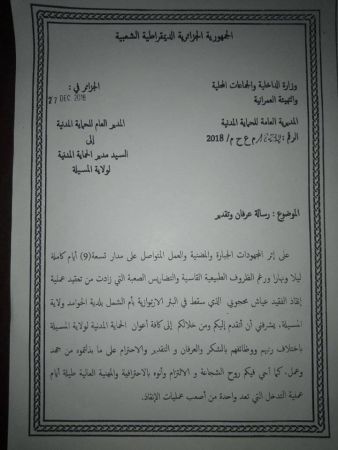 الجمهورية الجزائرية الديمقراطية الشعبية
وزارة الداخلية والجماعات المحلية
والتهيئة العمرانية
المديرية العامة للحماية المدنية
الرقم: م ع ح م/ 2018
الجزائر في :
27 DEC 2018
المدير العام للحماية المدنية
إلى
السيد مدير الحماية المدنية
لولاية المسيلة
الموضوع : رسالة عرفان وتقدير
على إثر المجهودات الجبارة والمضنية والعمل المتواصل على مدار تسعة(9) أيام كاملة
ليلا ونهارا ورغم الظروف الطبيعية القاسية والتضاريس الصعبة التي زادت من تعقيد عملية
إنقاذ الفقيد عياش محجوبي الذي سقط في البئر الارتوازية بأم الشمل بلدية الحوامد ولاية
المسيلة، يشرفني أن أتقدم إليكم ومن خلالكم إلى كافة أعوان الحماية المدنية لولاية المسيلة
باختلاف رتبهم ووظائفهم بالشكر والعرفان و التقدير والاحترام على ما بذلتموه من جهد
وعمل، كما أحي فيكم روح الشجاعة و الالتزام وأنوه بالاحترافية والمهنية العالية طيلة أيام
عملية التدخل التي تعد واحدة من أصعب عمليات الإنقاذ.